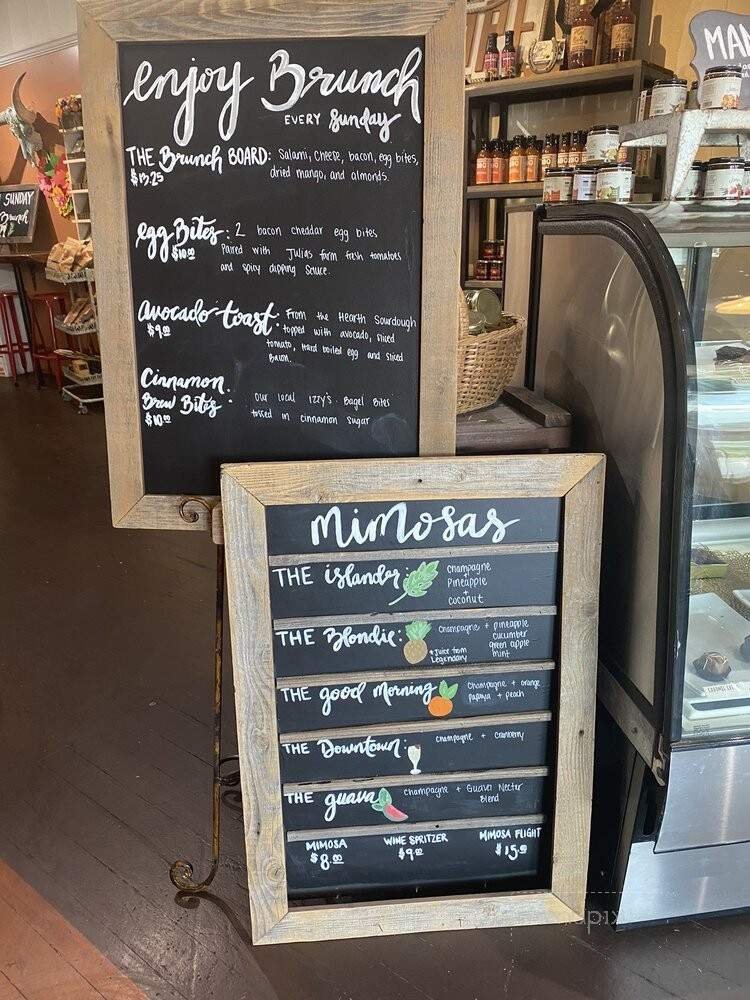 enjoy Brunch
EVERY Sunday
THE Brunch BOARD: Salami, cheese, bacon, egg bites,
$13.25 dried mango, and almonds.
egg Bites: 2 bacon cheddar egg bites
$10.00 Paired with Julias farm fresh tomatoes
and spicy dipping sauce.
Avocado toast: From the Hearth Sourdough
$9.00 topped with avocado, sliced
tomato, hard boiled egg and sliced
Bacon.
Cinnamon
Brew Bites: our local Izzy's Bagel Bites
$10.00 tossed in cinnamon sugar
SUNDAY
Brunch
MAN
mimosas
THE islander: champagne
+
Pineapple
+
coconut
THE Blondie: champagne + pineapple
cucumber
*Juice from green apple
Legendary mint
THE good morning champagne + orange
papaya + peach
THE Downtown: champagne + cranberry
THE guava champagne + Guava Nectar
Blend
MIMOSA WINE SPRITZER MIMOSA FLIGHT
$8.00 $9.00 $15.00